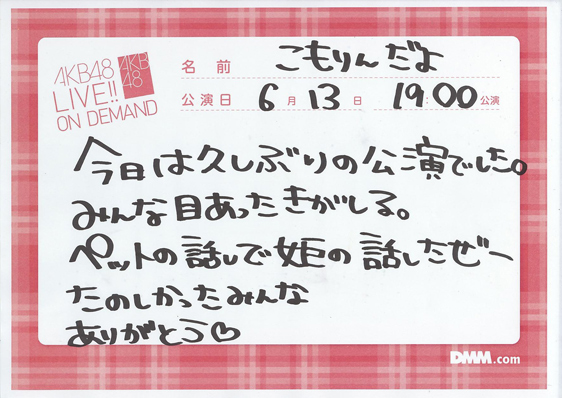 AKB48
LIVE!!
ON DEMAND
AKB
48
名前 こもりんだよ
公演日 6月13日 19:00公演
今日は久しぶりの公演でした。
みんな目あったきがしる。
ペットの話しで姫の話したぜー
たのしかったみんな
ありがとう♡
DMM.com